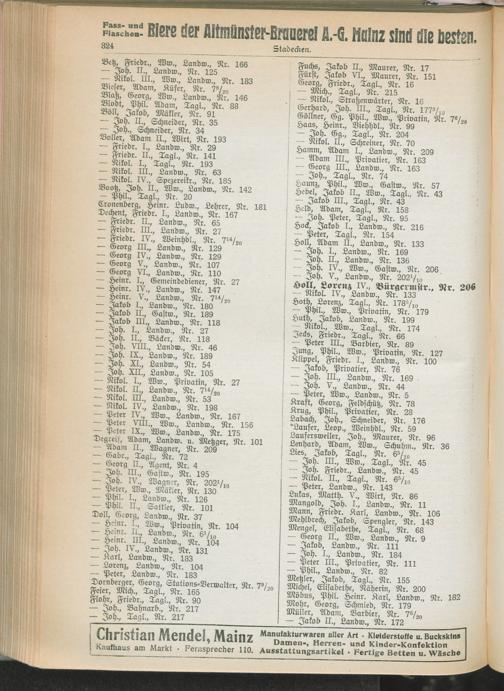 Fass- und Flaschen- Biere der Altmünster-Brauerei A.-G. Mainz sind die besten.
324
Stadecken.
Betz, Friedr., Ww., Landw., Nr. 166
— Joh. II., Landw., Nr. 125
— Nikol. III., Ww., Landw., Nr. 183
Bieser, Adam, Küfer, Nr. 7⁸/₂₀
Blatz, Georg, Ww., Landw., Nr. 146
Blodt, Phil. Adam, Tagl., Nr. 88
Böll, Jakob, Mäkler, Nr. 91
— Joh. II., Schneider, Nr. 35
— Joh., Schneider, Nr. 34
Boller, Adam II., Wirt, Nr. 193
— Friedr. I., Landw., Nr. 29
— Friedr. II., Tagl., Nr. 141
— Nikol. I., Tagl., Nr. 193
— Nikol. III., Landw., Nr. 63
— Nikol. IV., Spezereikr., Nr. 185
Bootz, Joh. II., Ww., Landw., Nr. 142
— Phil., Tagl., Nr. 20
Cronenberg, Heinr. Ludw., Lehrer, Nr. 181
Dechent, Friedr. I., Landw., Nr. 167
— Friedr. II., Landw., Nr. 65
— Friedr. III., Landw., Nr. 27
— Friedr. IV., Weinhdl., Nr. 7¹⁴/₂₀
— Georg III., Landw., Nr. 129
— Georg IV., Landw., Nr. 129
— Georg V., Landw., Nr. 107
— Georg VI., Landw., Nr. 110
— Heinr. I., Gemeindediener, Nr. 27
— Heinr. IV., Landw., Nr. 147
— Heinr. V., Landw., Nr. 7¹⁴/₂₀
— Jakob I., Landw., Nr. 180
— Jakob II., Gastw., Nr. 189
— Jakob III., Landw., Nr. 118
— Joh. I., Landw., Nr. 27
— Joh. II., Bäcker, Nr. 118
— Joh. VIII., Landw., Nr. 46
— Joh. IX., Landw., Nr. 189
— Joh. XI., Landw., Nr. 54
— Joh. XII., Landw., Nr. 105
— Nikol. I., Ww., Privatin, Nr. 27
— Nikol. II., Landw., Nr. 7¹⁴/₂₀
— Nikol. III., Landw., Nr. 53
— Nikol. IV., Landw., Nr. 198
— Peter IV., Ww., Landw., Nr. 167
— Peter VIII., Ww., Landw., Nr. 156
— Peter IX., Ww., Landw., Nr. 175
Degreif, Adam, Landw. u. Metzger, Nr. 101
— Adam II., Wagner, Nr. 209
— Gabr., Tagl., Nr. 72
— Georg II., Agent, Nr. 4
— Joh. III., Gastw., Nr. 195
— Joh. IV., Wagner, Nr. 202¹/₁₀
— Peter, Ww., Mäkler, Nr. 130
— Phil. I., Landw., Nr. 126
— Phil. II., Sattler, Nr. 101
Doll, Georg, Landw., Nr. 37
— Heinr. I., Ww., Privatin, Nr. 104
— Heinr. II., Landw., Nr. 6³/₁₀
— Heinr. III., Landw., Nr. 104
— Joh. IV., Landw., Nr. 131
— Karl, Landw., Nr. 183
— Lorenz, Landw., Nr. 104
— Peter, Landw., Nr. 183
Dornberger, Georg, Stations-Verwalter, Nr. 7⁹/₂₀
Feier, Mich., Tagl., Nr. 165
Flohr, Friedr., Tagl., Nr. 90
— Joh., Bahnarb., Nr. 217
— Joh., Tagl., Nr. 217
Fuchs, Jakob II., Maurer, Nr. 17
Fürst, Jakob VI., Maurer, Nr. 151
Georg, Friedr., Tagl., Nr. 16
— Mich., Tagl., Nr. 215
— Nikol., Straßenwärter, Nr. 16
Gerhard, Joh. III., Tagl., Nr. 177⁵/₁₀
Göllner, Gg. Phil., Ww., Privatin, Nr. 7⁶/₂₀
Haas, Heinr., Viehhdl., Nr. 99
— Joh. Gg., Tagl., Nr. 204
— Nikol. II., Schreiner, Nr. 70
Hamm, Adam I., Landw., Nr. 209
— Adam III., Privatier, Nr. 163
— Georg III., Landw., Nr. 163
— Joh., Tagl., Nr. 74
Hauzu, Phil., Ww., Gastw., Nr. 57
Hebel, Jakob II., Ww., Tagl., Nr. 43
— Jakob III., Tagl., Nr. 43
Held, Adam, Tagl., Nr. 158
— Joh. Peter, Tagl., Nr. 95
Hock, Jakob I., Landw., Nr. 216
— Peter, Tagl., Nr. 154
Holl, Adam II., Landw., Nr. 133
— Joh. I., Landw., Nr. 169
— Joh. II., Landw., Nr. 136
— Joh. IV., Ww., Gastw., Nr. 206
— Joh. V., Landw., Nr. 202¹/₁₀
Holl, Lorenz IV., Bürgermstr., Nr. 206
— Nikol. IV., Landw., Nr. 133
Hoth, Lorenz, Tagl., Nr. 178⁵/₁₀
— Phil., Ww., Privatin, Nr. 179
Huth, Jakob, Landw., Nr. 199
— Nikol., Ww., Tagl., Nr. 174
Jecks, Friedr., Tagl., Nr. 66
— Peter III., Barbier, Nr. 89
Jung, Phil., Ww., Privatin, Nr. 127
Klippel, Friedr. I., Landw., Nr. 100
— Jakob, Privatier, Nr. 76
— Joh. III., Landw., Nr. 169
— Joh. V., Landw., Nr. 44
— Peter, Ww., Landw., Nr. 5
Kraft, Georg, Feldschütz, Nr. 78
Krug, Phil., Privatier, Nr. 28
Labach, Joh., Schneider, Nr. 176
*Laufer, Leop., Weinhdl., Nr. 59
Laufersweiler, Joh., Maurer, Nr. 96
Lenhard, Adam, Ww., Schuhm., Nr. 36
Lies, Jakob, Tagl., Nr. 6⁵/₁₀
— Joh. III., Ww., Tagl., Nr. 45
— Joh. Friedr., Landw., Nr. 45
— Nikol. II., Tagl., Nr. 6⁵/₁₀
— Peter, Landw., Nr. 143
Lukas, Matth. V., Wirt, Nr. 86
Mangold, Joh. I., Landw., Nr. 11
Mann, Friedr. Karl, Landw., Nr. 106
Mehlbrech, Jakob, Spengler, Nr. 143
Mengel, Elisabethe, Tagl., Nr. 68
— Georg II., Ww., Landw., Nr. 9
— Jakob, Landw., Nr. 111
— Joh. I., Landw., Nr. 184
— Peter III., Privatier, Nr. 111
— Phil., Landw., Nr. 82
Metzler, Jakob, Tagl., Nr. 155
Michel, Elisabethe, Näherin, Nr. 200
Möbus, Phil. Heinr. Karl, Landw., Nr. 182
Mohr, Georg, Schmied, Nr. 179
Müller, Adam, Barbier, Nr. 7⁶/₂₀
— Jakob II., Landw., Nr. 172
Christian Mendel, Mainz
Kaufhaus am Markt · Fernsprecher 110.
Manufakturwaren aller Art · Kleiderstoffe u. Buckskins
Damen-, Herren- und Kinder-Konfektion
Ausstattungsartikel · Fertige Betten u. Wäsche